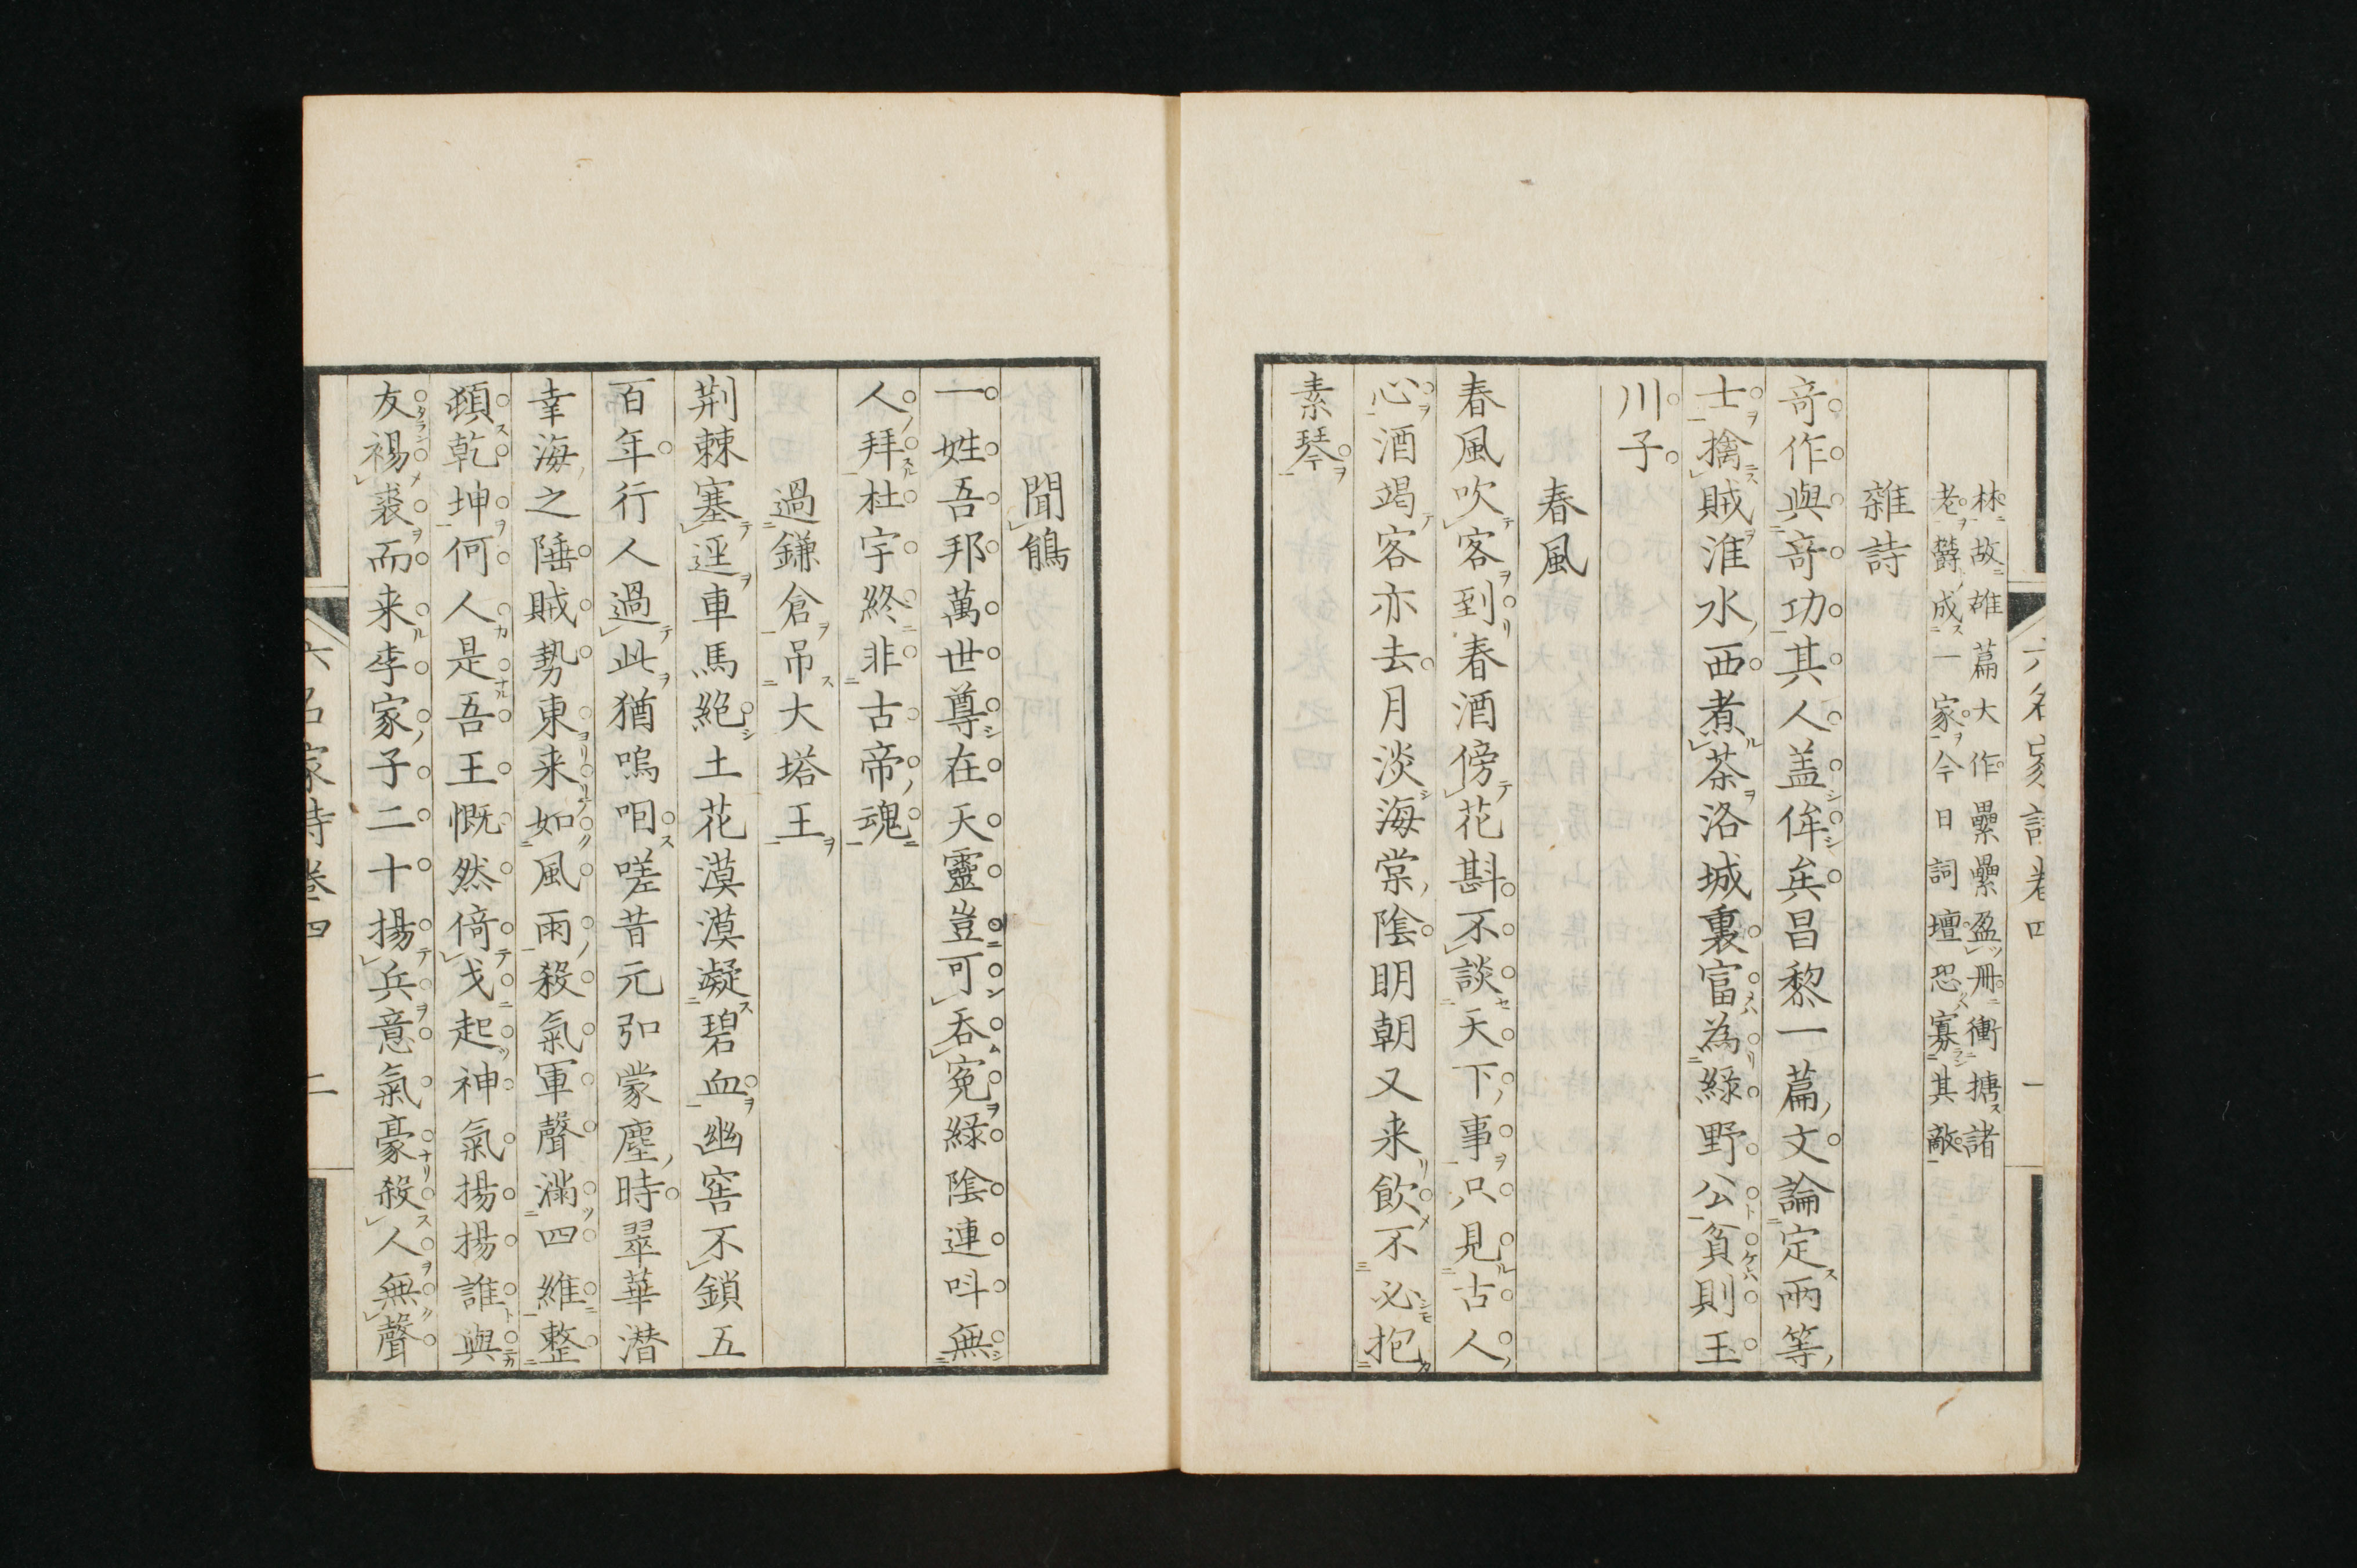 六名家詩卷四 一
林故雄篇大作纍纍盈冊衝搪諸
老欝成一家今日詞壇恐寡其敵
雜詩
竒作與竒功其人盖侔矣昌黎一篇文論定兩等
士擒賊淮水西煮茶洛城裏富為緑野公貧則玉
川子
春風
春風吹客到春酒傍花斟不談天下事只見古人
心酒竭客亦去月淡海棠陰明朝又来飲不必抱
素琴
聞鵑
一姓吾邦萬世尊在天靈豈可呑寃緑陰連呌無
人拜杜宇終非古帝魂
過鎌倉吊大塔王
荆棘塞逕車馬絶土花漠漠凝碧血幽窖不鎖五
百年行人過此猶嗚咽嗟昔元弘蒙塵時翠華潜
幸海之陲賊勢東来如風雨殺氣軍聲滿四維整
頓乾坤何人是吾王慨然倚戈起神氣揚揚誰與
友裼裘而来李家子二十揚兵意氣豪殺人無聲
六名家詩卷四 二